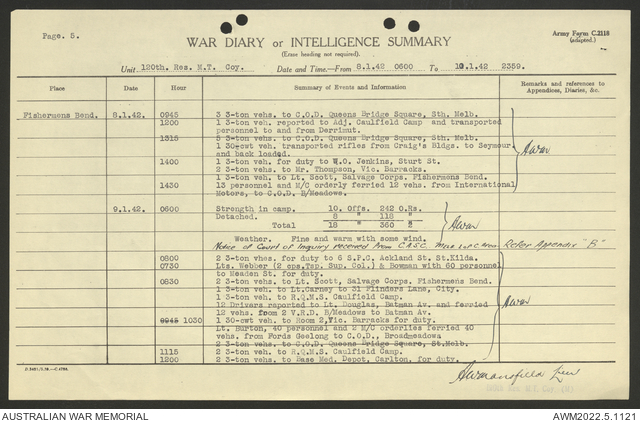 Page. 5.
WAR DIARY or INTELLIGENCE SUMMARY
(Erase heading not required).
Army Form C.2118
(adapted.)
Unit 120th. Res. M.T. Coy. Date and Time.—From 8.1.42 0600 To 10.1.42 2359.
Place Date Hour Summary of Events and Information Remarks and references to
Appendices, Diaries, &c.
Fishermens Bend. 8.1.42. 0945 3 3-ton vehs. to C.O.D. Queens Bridge Square, Sth. Melb.
1200 1 3-ton veh. reported to Adj. Caulfield Camp and transported
personnel to and from Derrimut.
1315 5 3-ton vehs. to C.O.D. Queens Bridge Square, Sth. Melb.
1 30-cwt veh. transported rifles from Craig's Bldgs. to Seymour
and back loaded.
1400 1 3-ton veh. for duty to W.O. Jenkins, Sturt St.
2 3-ton vehs. to Mr. Thompson, Vic. Barracks.
1 3-ton veh. to Lt. Scott, Salvage Corps. Fishermens Bend.
1430 13 personnel and M/C orderly ferried 12 vehs. from International
Motors, to C.O.D. B/Meadows.
9.1.42. 0600 Strength in camp. 10. Offs. 242 O.Rs.
Detached. 8 " 118 "
Total 18 " 360 "
Weather. Fine and warm with some wind.
Notice of Court of Inquiry received from C.A.S.C. Refer Appendix "B"
0800 2 3-ton vehs. for duty to 6 S.P.C. Ackland St. St.Kilda.
0730 Lts. Webber (2 ops.Tsp. Sup. Col.) & Bowman with 60 personnel
to Meaden St. for duty.
0830 2 3-ton vehs. to Lt. Scott, Salvage Corps, Fishermens Bend.
1 3-ton veh. to Lt.Carney to 31 Flinders Lane, City.
1 3-ton veh. to R.Q.M.S. Caulfield Camp.
12 Drivers reported to Lt. Douglas, Batman Av. and ferried
12 vehs. from 2 V.R.D. B/Meadows to Batman Av.
0945 1030 1 30-cwt veh. to Room 2, Vic. Barracks for duty.
Lt. Burton, 40 personnel and 2 M/C orderlies ferried 40
vehs. from Fords Geelong to C.O.D., Broadmeadows
2 3-ton vehs. to C.O.D. Queens Bridge Square, St.Melb.
1115 2 3-ton veh. to R.Q.M.S. Caulfield Camp.
1200 2 3-ton vehs. to Base Med. Depot, Carlton, for duty.
AUSTRALIAN WAR MEMORIAL
AWM2022.5.1121